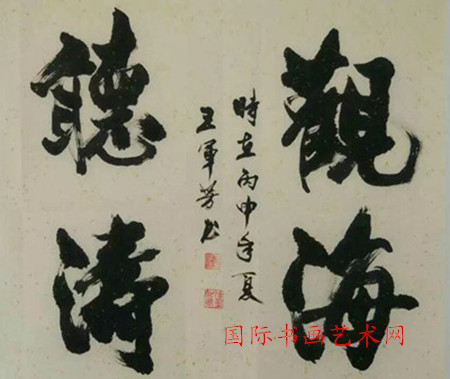 觀海
聽濤
時在丙申年夏
王軍芳书
国际书画艺术网